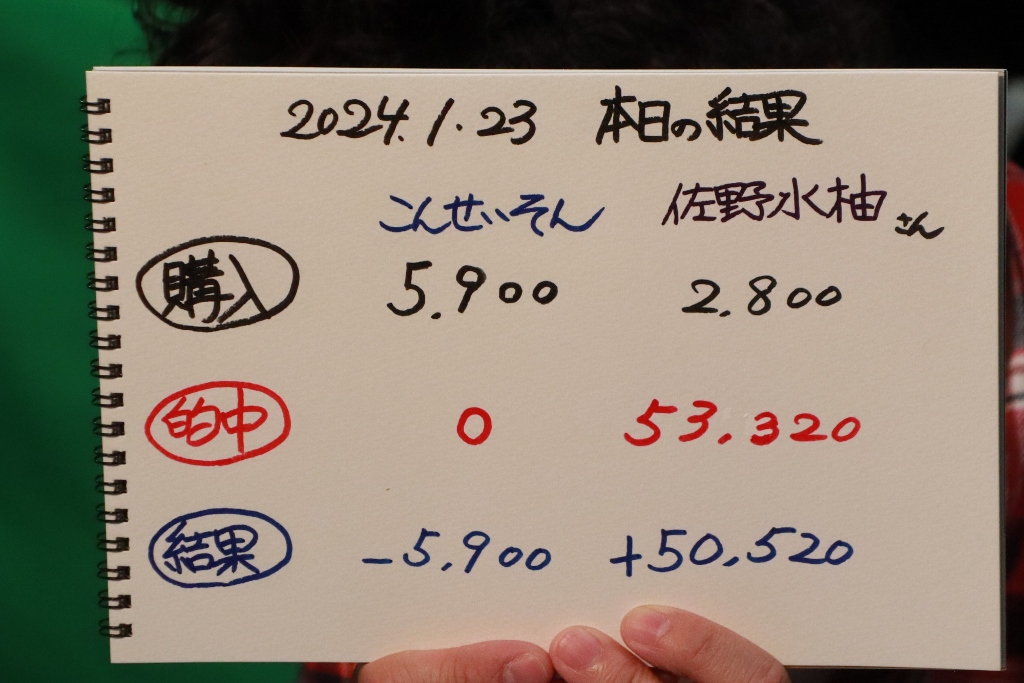 2024.1.23 本日の結果
こんせいそん 佐野水柚さん
購入 5.900 2.800
的中 0 53.320
結果 -5.900 +50.520